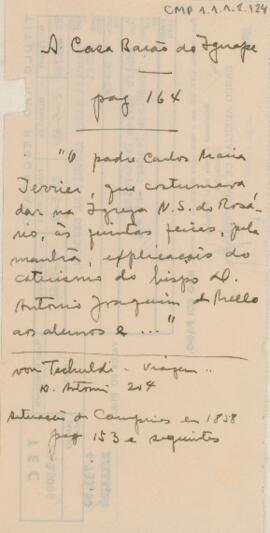 CMP 1.1.1.2.124
A Casa Barão do Iguape
pag 164
"O padre Carlos Maria
Terrier, que costumava
dar na Igreja N.S. do Rosá-
rio, às quintas feiras, pela
manhã, explicação do
catecismo do bispo D.
Antonio Joaquim de Mello
aos alunos e ..."
von Tschuldi - Viagem ..
204
situação de Campinas en 1858
pag 153 e seguintes
TEC